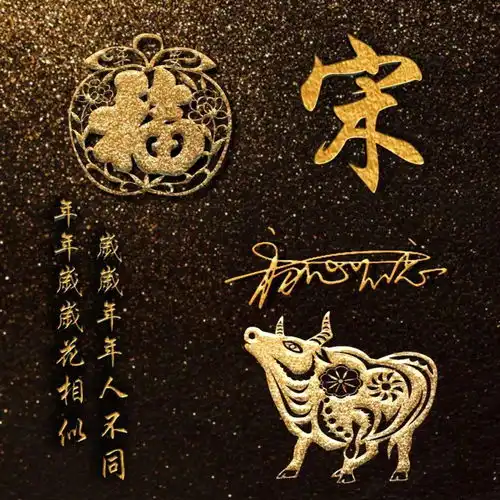 福
宋
年年歲歲花相似
歲歲年年人不同